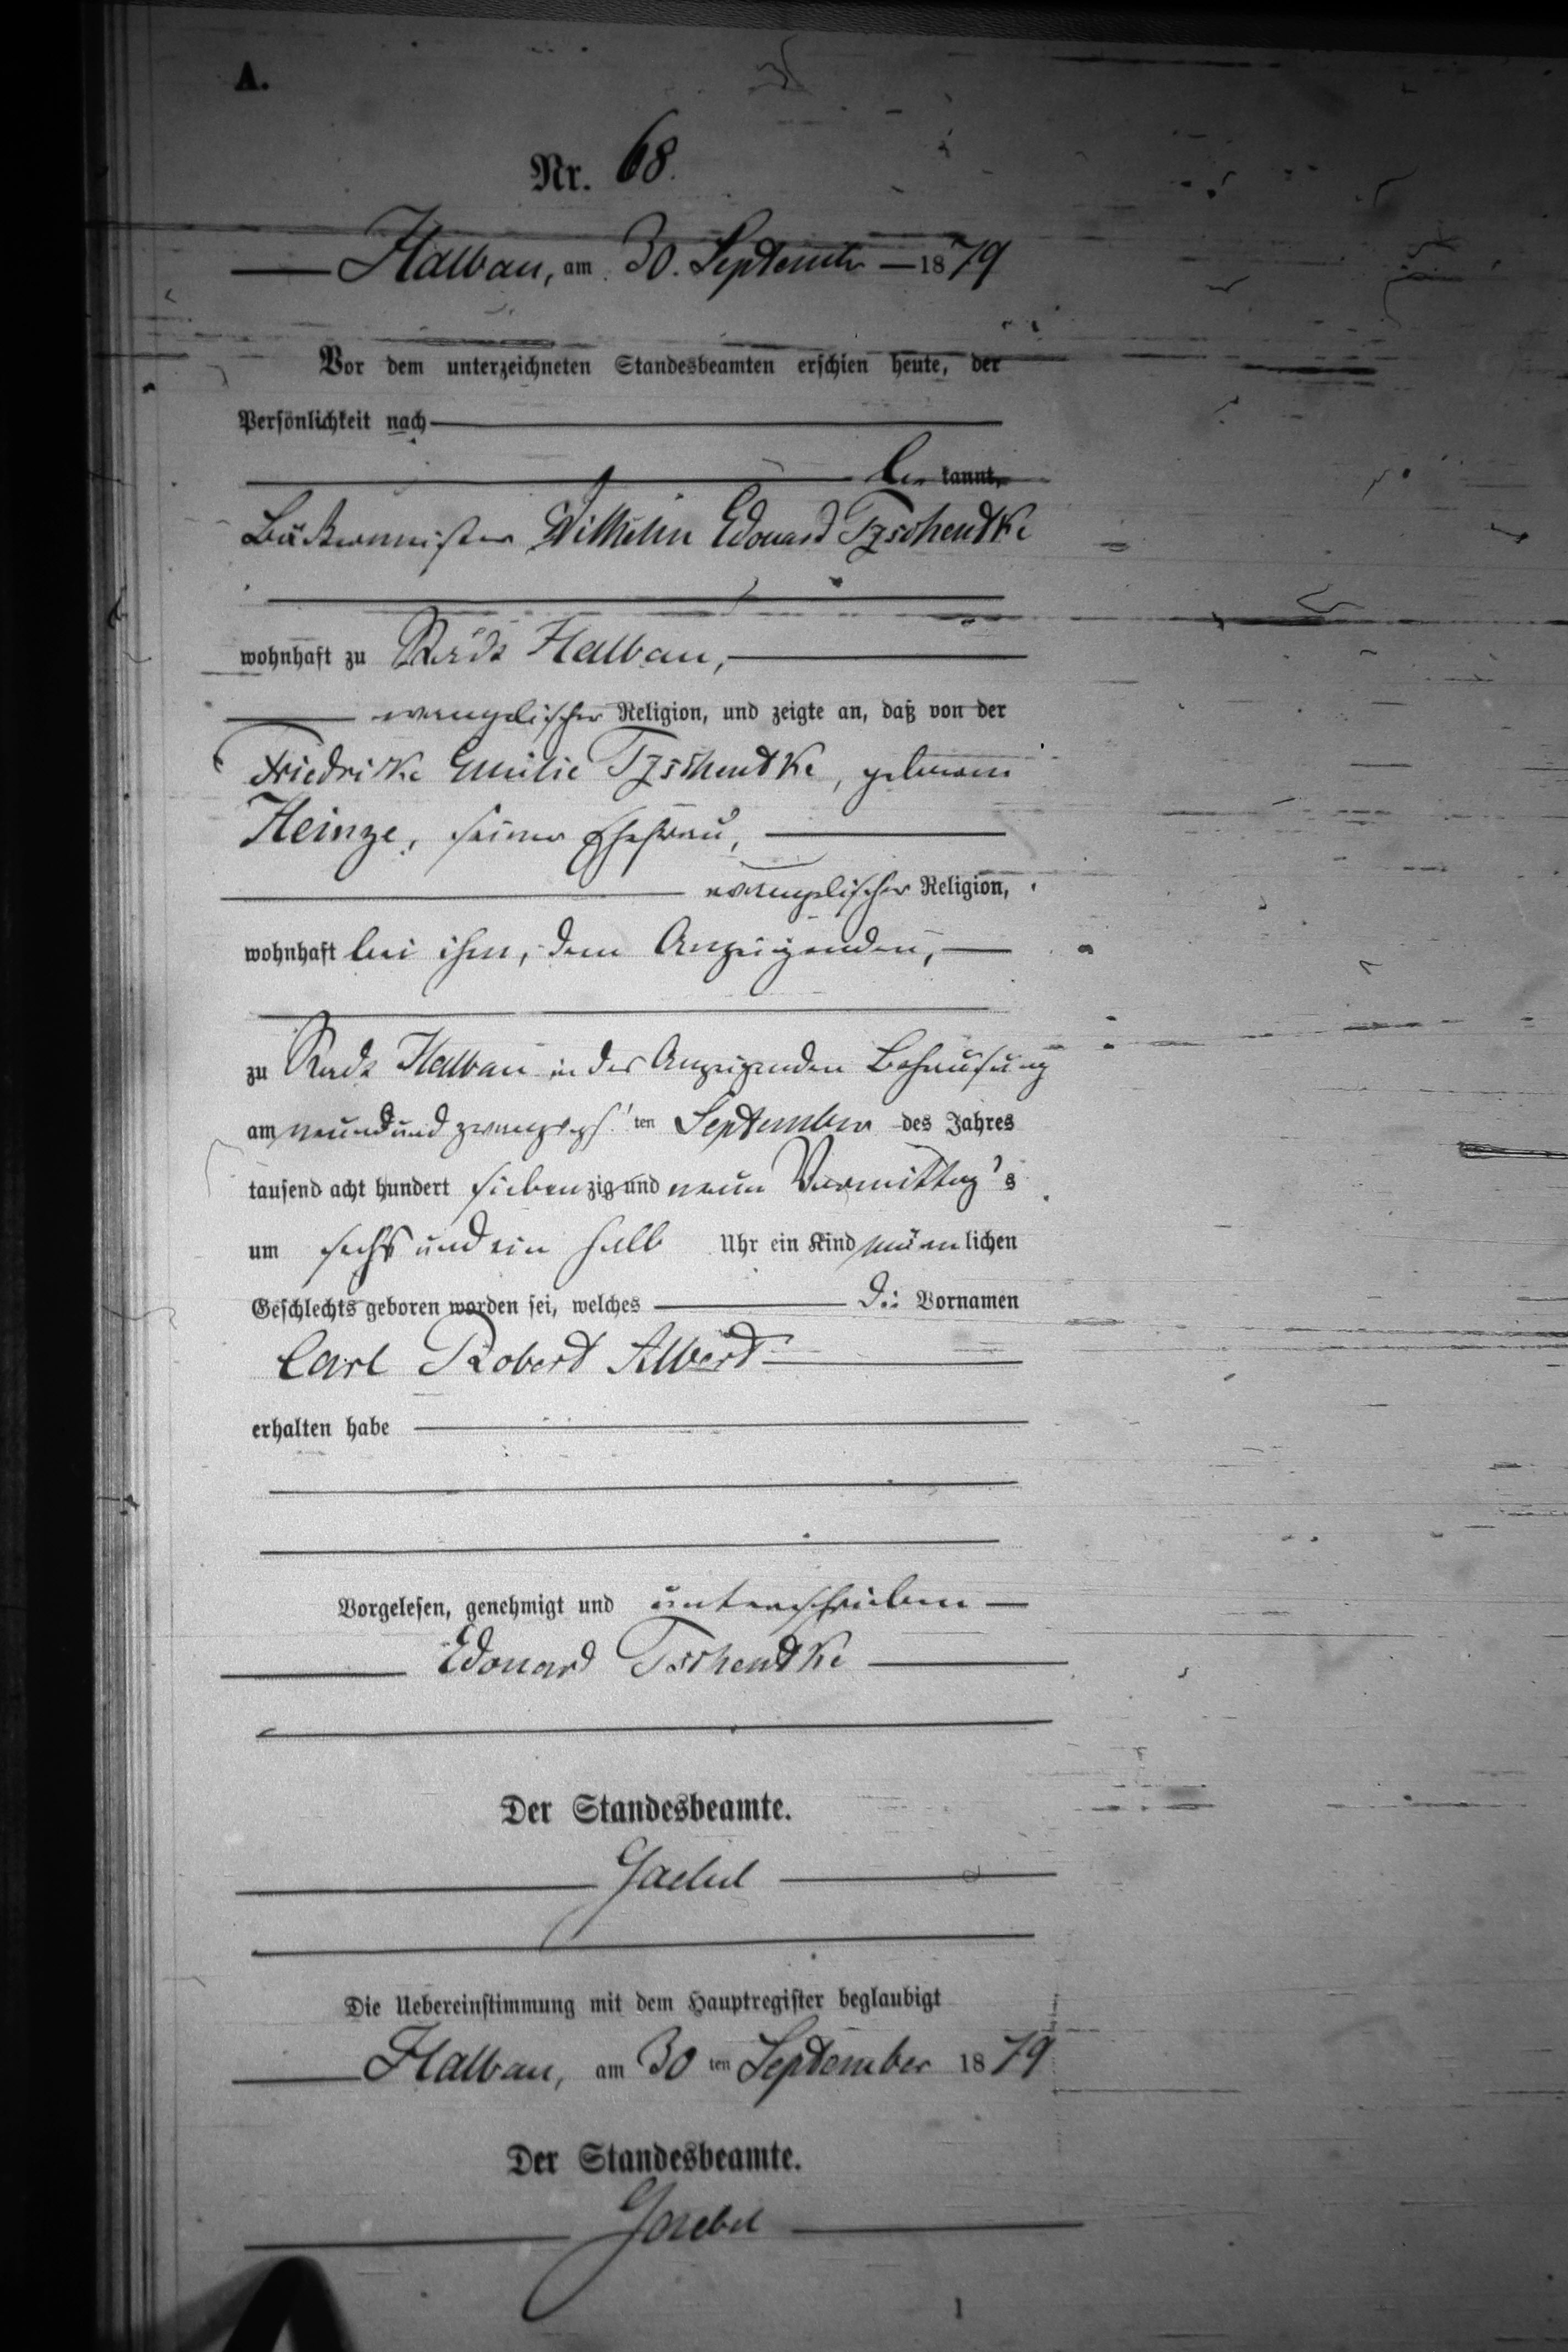 A.
Nr. 68.
Halbau, am 30. September 1879
Vor dem unterzeichneten Standesbeamten erschien heute, der
Persönlichkeit nach
be kannt,
Bäckermeister Wilhelm Edouard Tzschendtke
wohnhaft zu Stadt Halbau,
evangelischer Religion, und zeigte an, daß von der
Friedricke Emilie Tzschendtke, geborene
Heinze, seiner Ehefrau,
evangelischer Religion,
wohnhaft bei ihm, dem Anzeigenden,
zu Stadt Halbau in des Anzeigenden Behausung
am neunundzwanzigsten September des Jahres
tausend acht hundert siebenzig und neun Vormittag's
um sechs und ein halb Uhr ein Kind männlichen
Geschlechts geboren worden sei, welches die Vornamen
Carl Robert Albert
erhalten habe
Vorgelesen, genehmigt und unterschrieben
Edouard Tschendtke
Der Standesbeamte.
Gaebel
Die Uebereinstimmung mit dem Hauptregister beglaubigt
Halbau, am 30 ten September 1879
Der Standesbeamte.
Gaebel
1